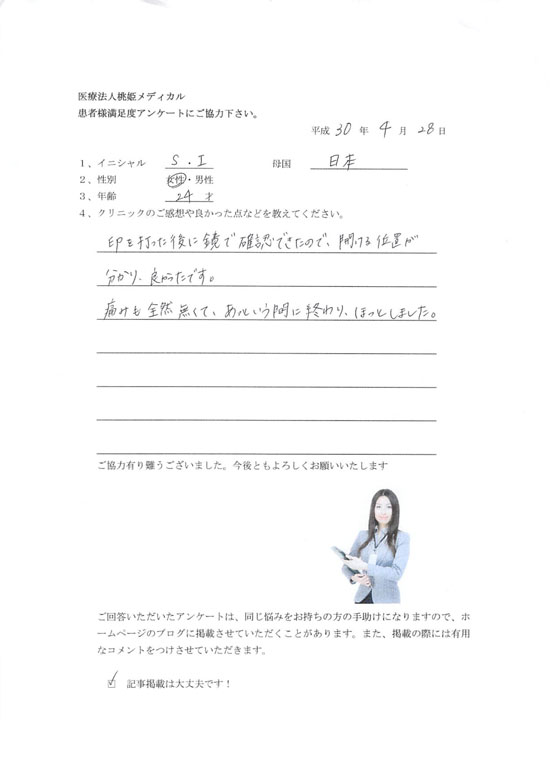 医療法人桃姫メディカル
患者様満足度アンケートにご協力下さい。
平成 30 年 4 月 28 日
1、イニシャル S.I 母国 日本
2、性別 女性・男性
3、年齢 24 才
4、クリニックのご感想や良かった点などを教えてください。
印を打った後に鏡で確認できたので、開ける位置が
分かり、良かったです。
痛みも全然無くて、あっという間に終わり、ほっとしました。
ご協力有り難うございました。今後ともよろしくお願いいたします
ご回答いただいたアンケートは、同じ悩みをお持ちの方の手助けになりますので、ホ
ームページのブログに掲載させていただくことがあります。また、掲載の際には有用
なコメントをつけさせていただきます。
☑ 記事掲載は大丈夫です！